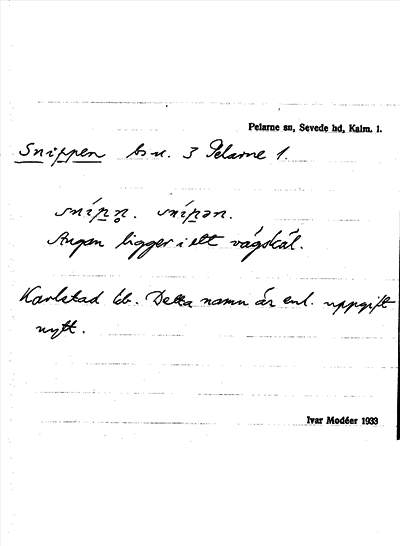 Pelarne sn, Sevede hd, Kalm. l.
Snippen bs u. 3 Pelarne 1.
snípn̥. snípən.
Ängen ligger i ett vägskäl.
Karlstad lb. Detta namn är enl. uppgift
nytt.
Ivar Modéer 1933